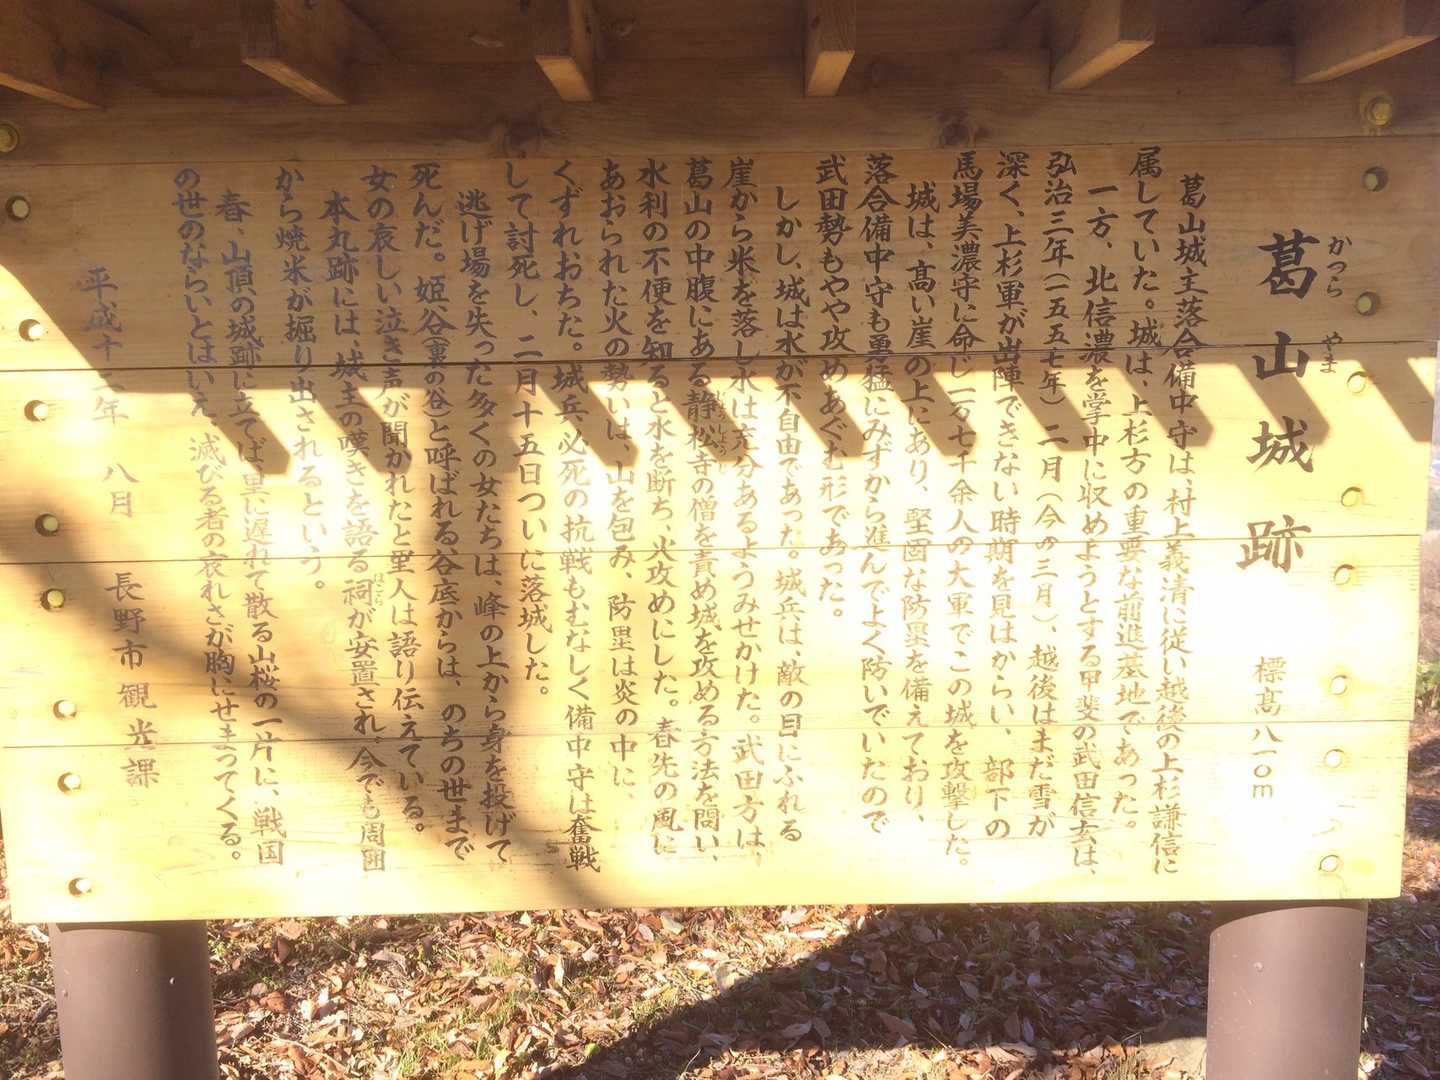 葛山城跡 標高八一〇m
かつら やま
葛山城主落合備中守は、村上義清に従い越後の上杉謙信に
属していた。城は、上杉方の重要な前進基地であった。
一方、北信濃を掌中に収めようとする甲斐の武田信玄は、
弘治三年(一五五七年)二月(今の三月)、越後はまだ雪が
深く、上杉軍が出陣できない時期を見はからい、部下の
馬場美濃守に命じ一万七千余人の大軍でこの城を攻撃した。
城は、高い崖の上にあり、堅固な防塁を備えており、
落合備中守も勇猛にみずから進んでよく防いでいたので
武田勢もやや攻めあぐむ形であった。
しかし、城は水が不自由であった。城兵は、敵の目にふれる
崖から米を落し水は充分あるようみせかけた。武田方は、
葛山の中腹にある静松寺の僧を責め城を攻める方法を問い、
水利の不便を知ると水を断ち、火攻めにした。春先の風に
あおられた火の勢いは、山を包み、防塁は炎の中に、
くずれおちた。城兵必死の抗戦もむなしく備中守は奮戦
して討死し、二月十五日ついに落城した。
逃げ場を失った多くの女たちは、峰の上から身を投げて
死んだ。姫谷(裏の谷)と呼ばれる谷底からは、のちの世まで
女の哀しい泣き声が聞かれたと里人は語り伝えている。
本丸跡には、城主の嘆きを語る祠が安置され、今でも周囲
ほこら
から焼米が掘り出されるという。
春、山頂の城跡に立てば、里に遅れて散る山桜の一片に、戦国
の世のならいとはいえ、滅びる者の哀れさが胸にせまってくる。
平成十 年 八月 長野市観光課